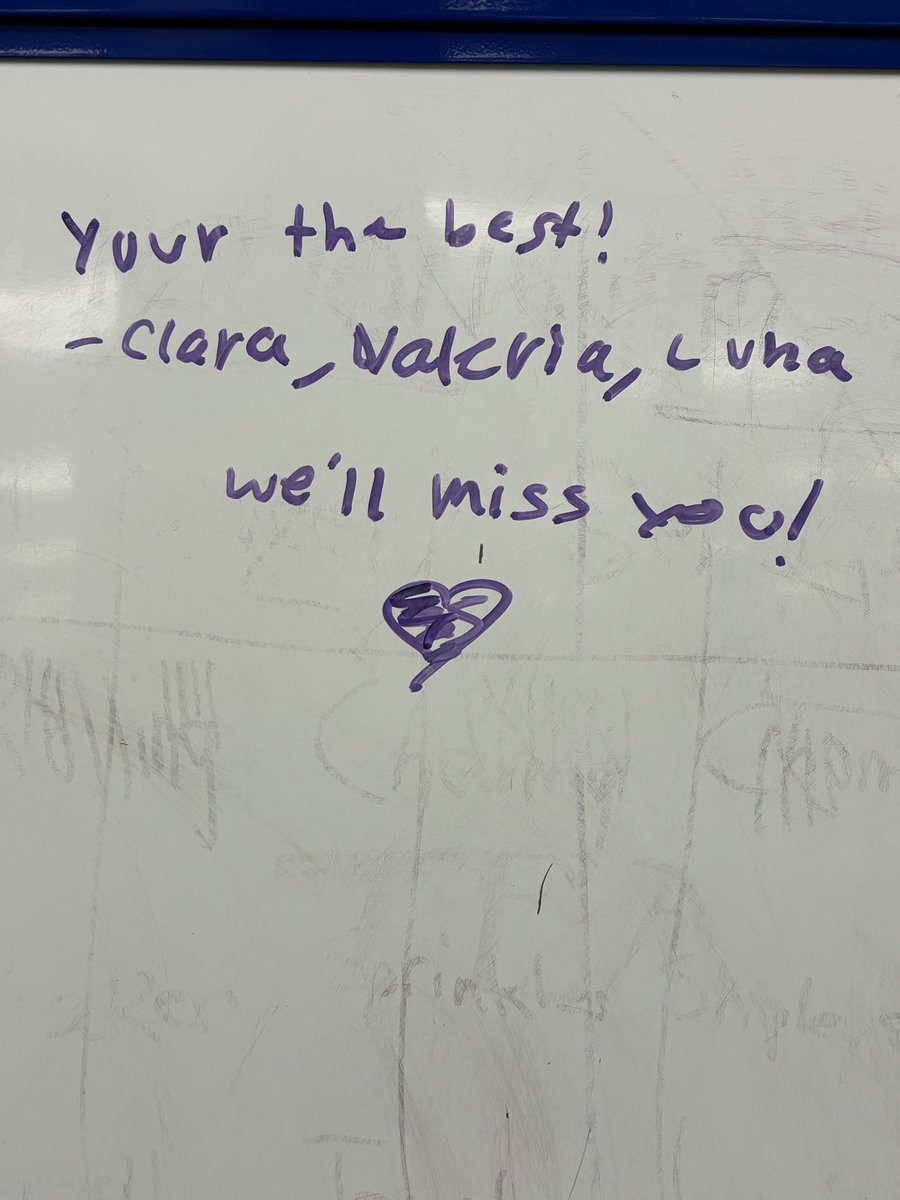 Your the best!
-Clara, Valeria, Luna
we'll miss you!
sprinkles